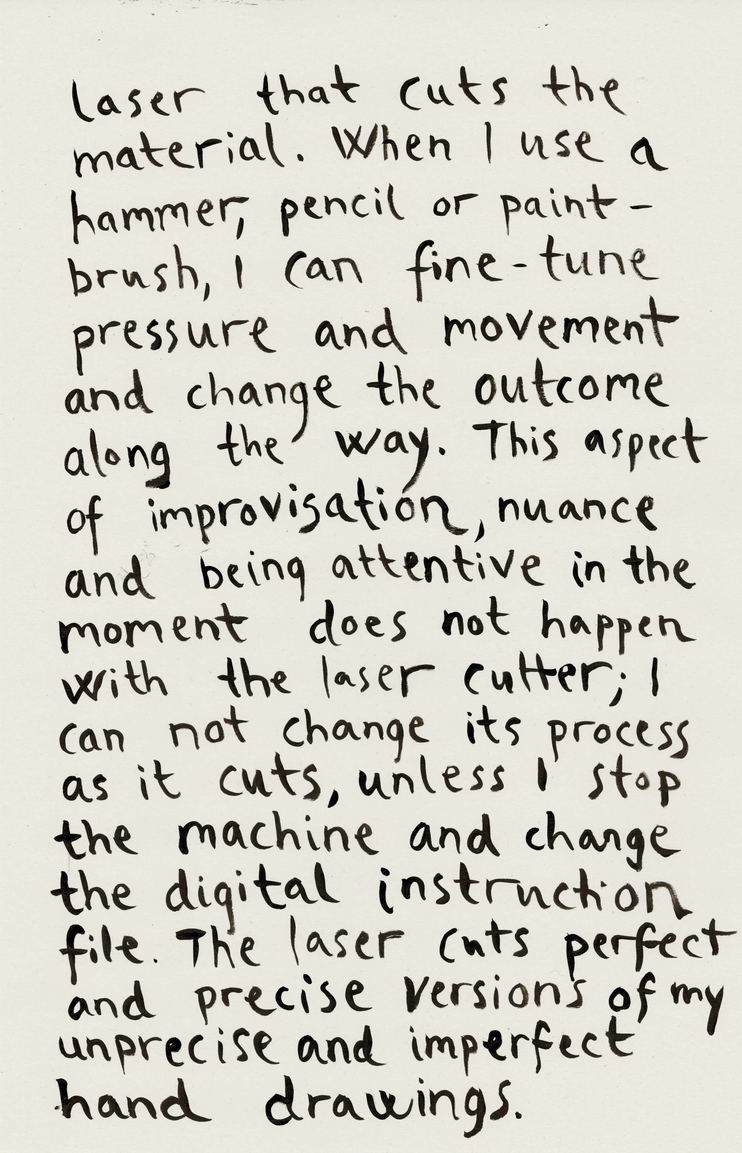 laser that cuts the
material. When I use a
hammer, pencil or paint-
brush, I can fine-tune
pressure and movement
and change the outcome
along the way. This aspect
of improvisation, nuance
and being attentive in the
moment does not happen
with the laser cutter; I
can not change its process
as it cuts, unless I stop
the machine and change
the digital instruction
file. The laser cuts perfect
and precise versions of my
unprecise and imperfect
hand drawings.